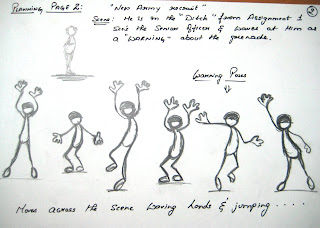 Planning Page 2: "New Army recruit"
Scene: He is in the "Ditch" from Assignment 1
Sees the Senior Officer & waves at Him as
a "WARNING" about the grenade.
Warning Poses
Moves across the scene waving hands & jumping ....